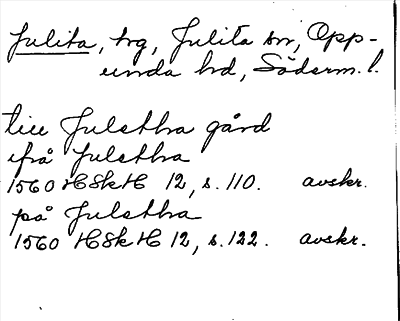 Julita, hg, Julita sn, Opp-
unda hd, Söderm. l.
till Julettha gård
ifrå Julettha
1560 HSkH 12, s. 110. avskr.
på Julettha
1560 HSkH 12, s. 122. avskr.